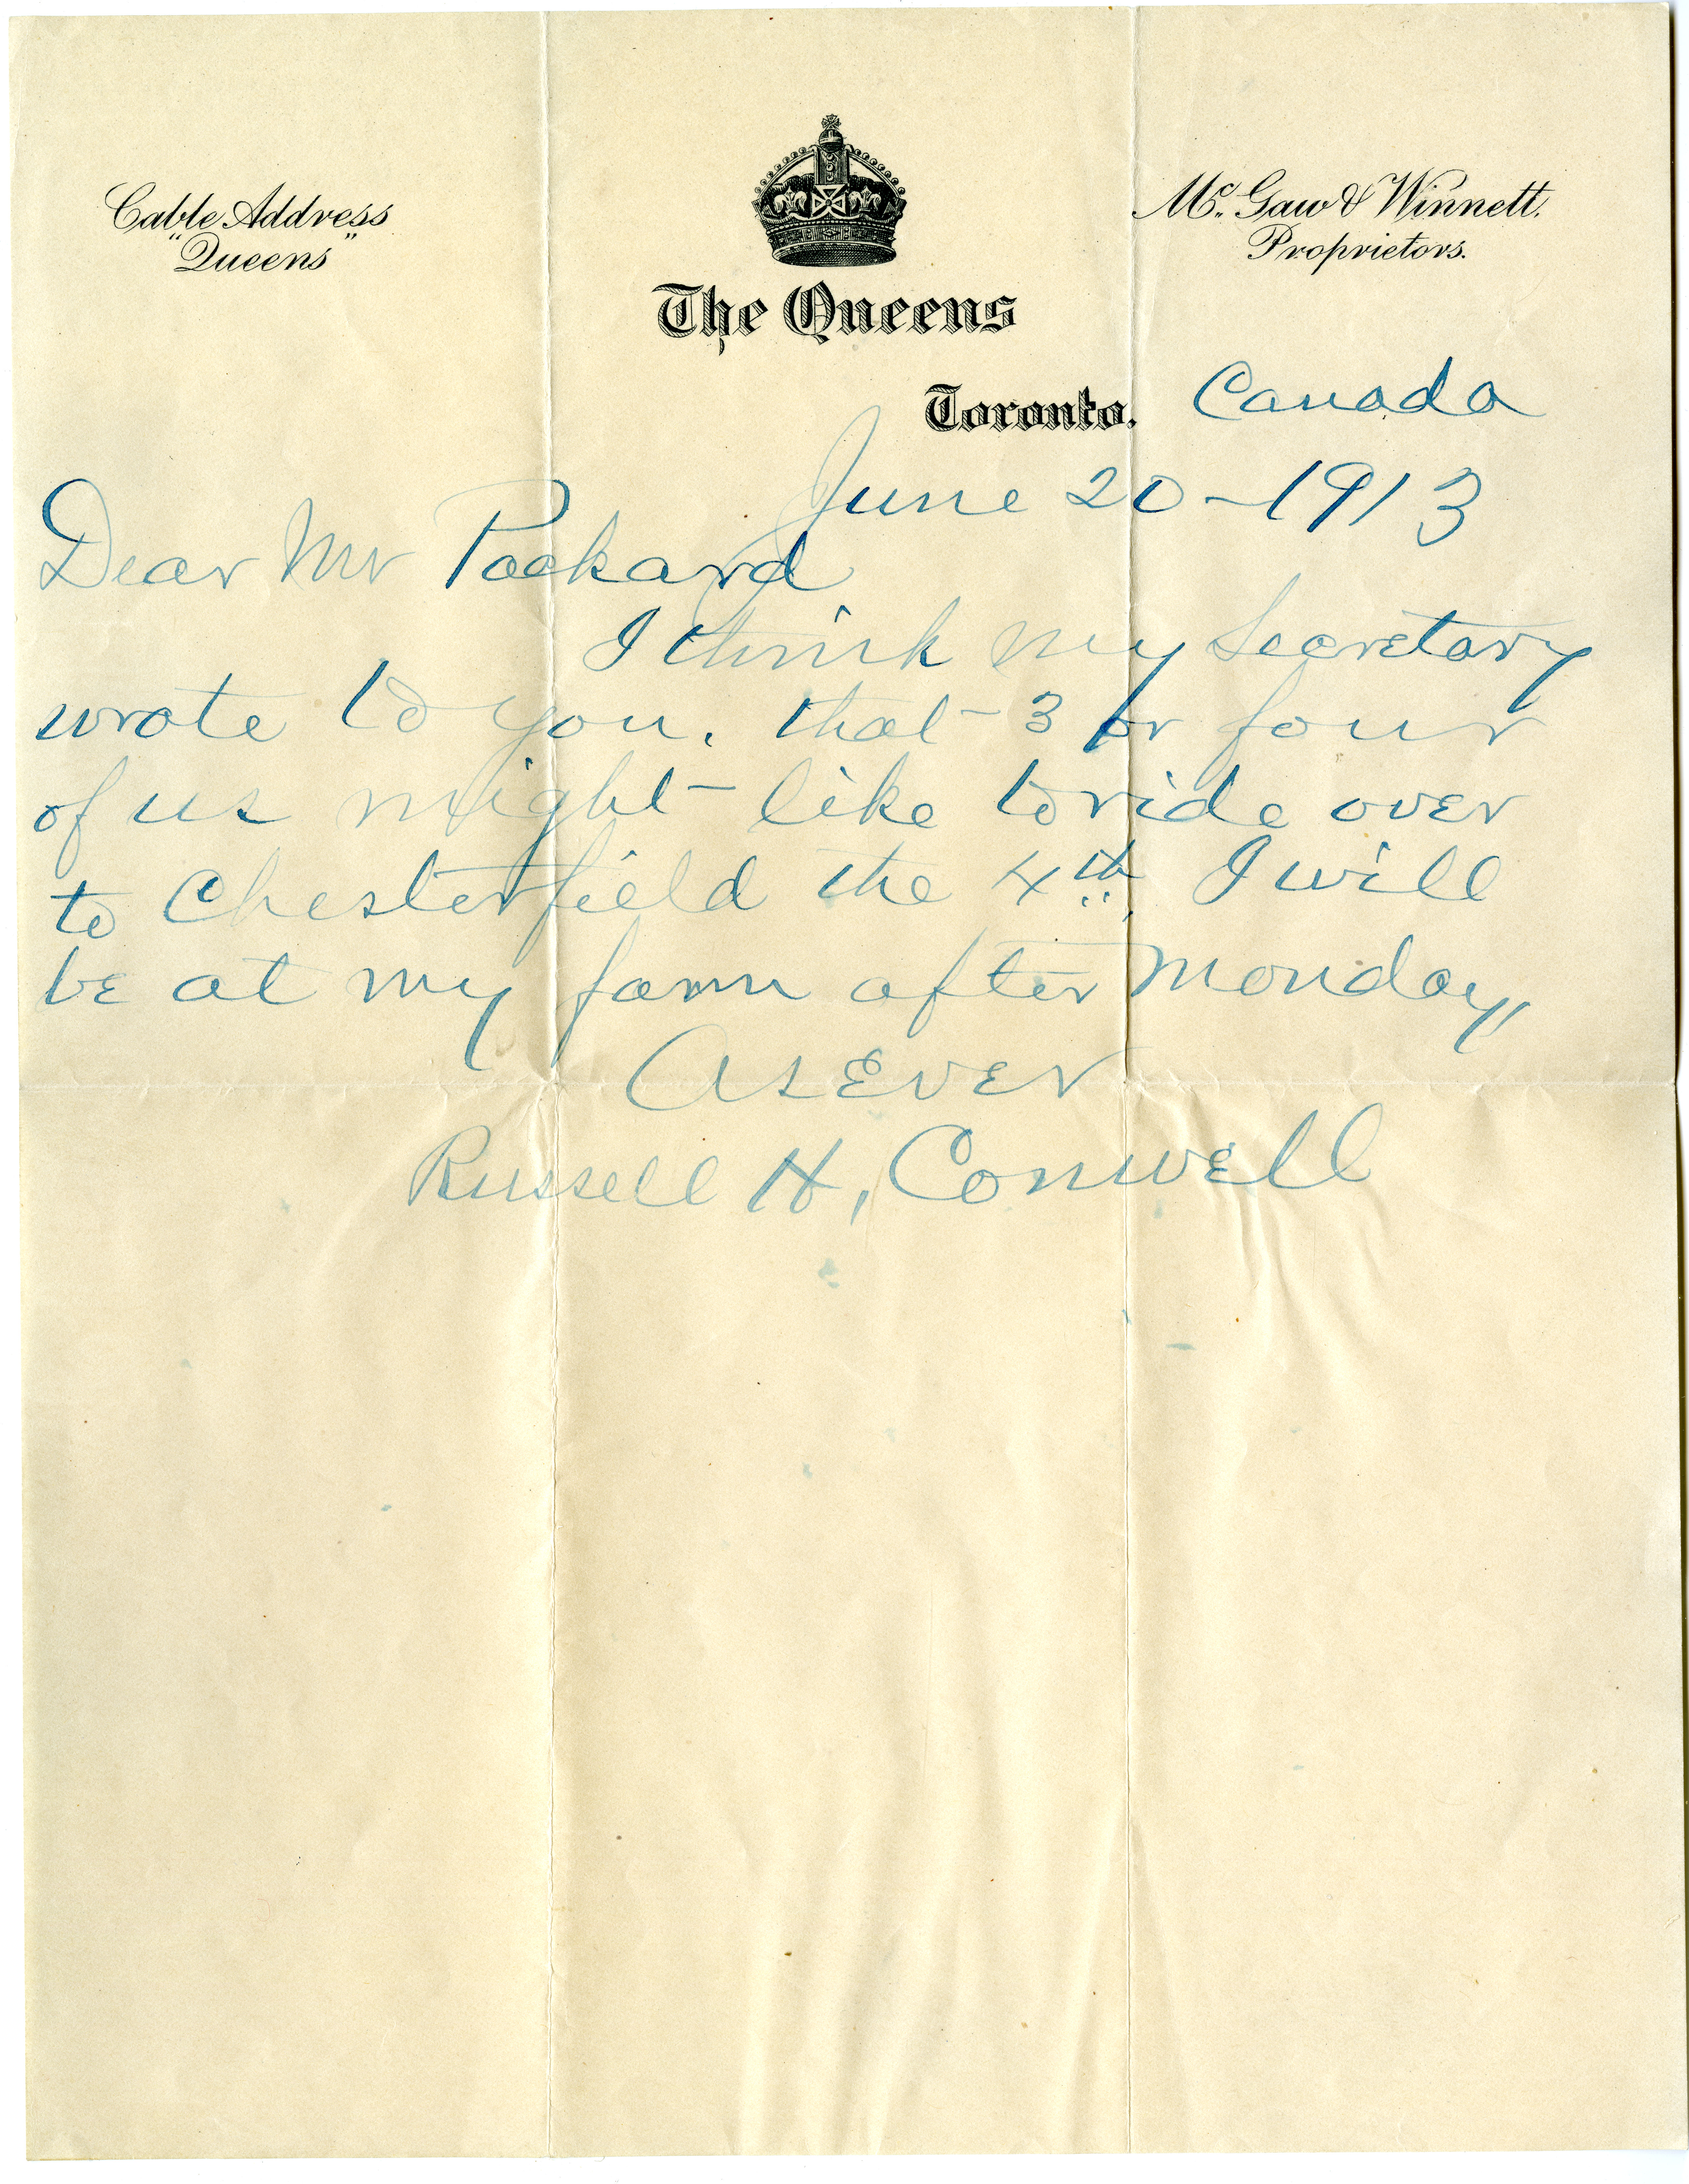 Cable Address
"Queens"
Mc. Gaw & Winnett.
Proprietors.
The Queens
Toronto. Canada
June 20-1913
Dear Mr Packard
I think my Secretary
wrote to you. that- 3 or four
of us might- like to ride over
to Chesterfield the 4th. I will
be at my farm after Monday,
As Ever
Russell H, Conwell